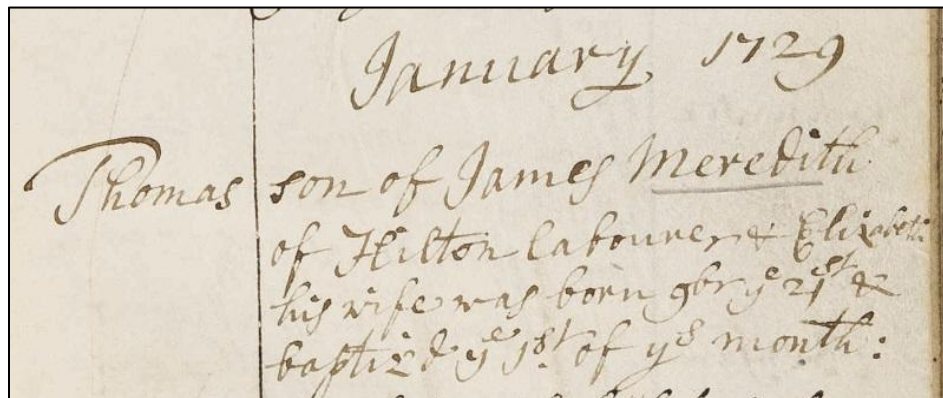 January 1729
Thomas son of James Meredith
of Hilton labourer & Elizabeth
his wife was born 9br ye 21st &
baptiz'd ye 1st of ys month: